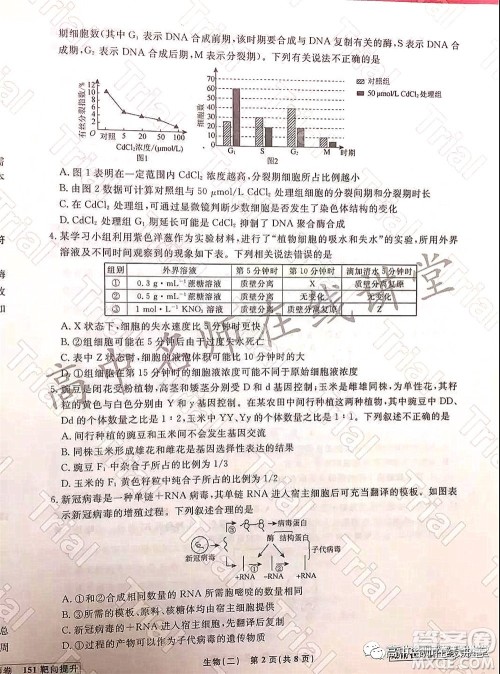 期细胞数(其中 G₁ 表示 DNA 合成前期,该时期要合成与 DNA 复制有关的酶,S 表示 DNA 合
成期,G₂ 表示 DNA 合成后期,M 表示分裂期)。下列有关说法不正确的是
有丝分裂指数/%
12
10
8
6
4
2
0
对照 5 20 50 100
CdCl₂浓度/(μmol/L)
图1
细胞数
70
60
50
40
30
20
10
0
对照组
50 μmol/L CdCl₂处理组
G₁ S G₂ M 时期
图2
A. 图 1 表明在一定范围内 CdCl₂ 浓度越高,分裂期细胞所占比例越小
B. 由图 2 数据可计算对照组与 50 μmol/L CdCl₂ 处理组细胞的分裂间期和分裂期时长
C. 在 CdCl₂ 处理组中,可通过显微镜判断少数细胞是否发生了染色体结构的变化
D. CdCl₂ 处理组 G₁ 期延长可能是 CdCl₂ 抑制了 DNA 聚合酶合成
4. 某学习小组利用紫色洋葱作为实验材料,进行了“植物细胞的吸水和失水”的实验,所用外界
溶液及不同时间观察到的现象如下表。下列相关说法错误的是
组别 外界溶液 第 5 分钟时 第 10 分钟时 滴加清水 5 分钟时
① 0.3 g·mL⁻¹ 蔗糖溶液 质壁分离 X 质壁分离复原
② 0.5 g·mL⁻¹ 蔗糖溶液 质壁分离 无变化 无变化
③ 1 mol·L⁻¹ KNO₃ 溶液 质壁分离 Z 质壁分离复原
A. X 状态下,细胞的失水速度比 5 分钟时更快
B. ②组细胞在第 10 分钟后由于过度失水死亡
C. 表中 Z 状态时,细胞的液泡体积可能比 10 分钟的大
D. ①②组细胞在第 15 分钟时的细胞液浓度可能不同于实验起始时的细胞液浓度
5. 豌豆是闭花受粉植物,高茎和矮茎分别受 D 和 d 基因控制;玉米是雌雄同株,为单性花,其籽
粒的黄色与白色分别由 Y 和 y 基因控制。在某农田中间行种植这两种植物,其中豌豆中 DD、
Dd 的个体数量之比为 1∶2,玉米中 YY、Yy 的个体数量之比为 1∶2。下列叙述不正确的是
A. 间行种植的豌豆和玉米不会发生基因交流
B. 同株玉米形成雄花和雌花是基因选择性表达的结果
C. 豌豆 F₁ 中杂合子所占的比例为 1/3
D. 玉米的 F₁ 黄色籽粒中纯合子所占的比例为 1/3
6. 新冠病毒是一种单链+RNA 病毒,其单链 RNA 进入宿主细胞后可充当翻译的模板。如图表
示新冠病毒的增殖过程。下列叙述合理的是
新冠病毒
病毒蛋白
酶 结构蛋白
子代病毒
①
②
③
+RNA -RNA +RNA
A. ①和②合成相同数量的 RNA 所需嘧啶的数量相同
B. ③所需的模板、原料、核糖体均由宿主细胞提供
C. ①②③过程均发生了碱基配对
D. ①过程的产物可以作为子代病毒的遗传物质
生物(二) 第 2 页(共 8 页)
151 靶向提升
高中名师在线讲堂
Trial